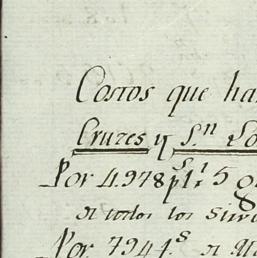 Costos que ha
Cruzes y S.n Lo
Por 4.978 p.s 1 r 5 g
de todos los Sir
Por 7941.s de